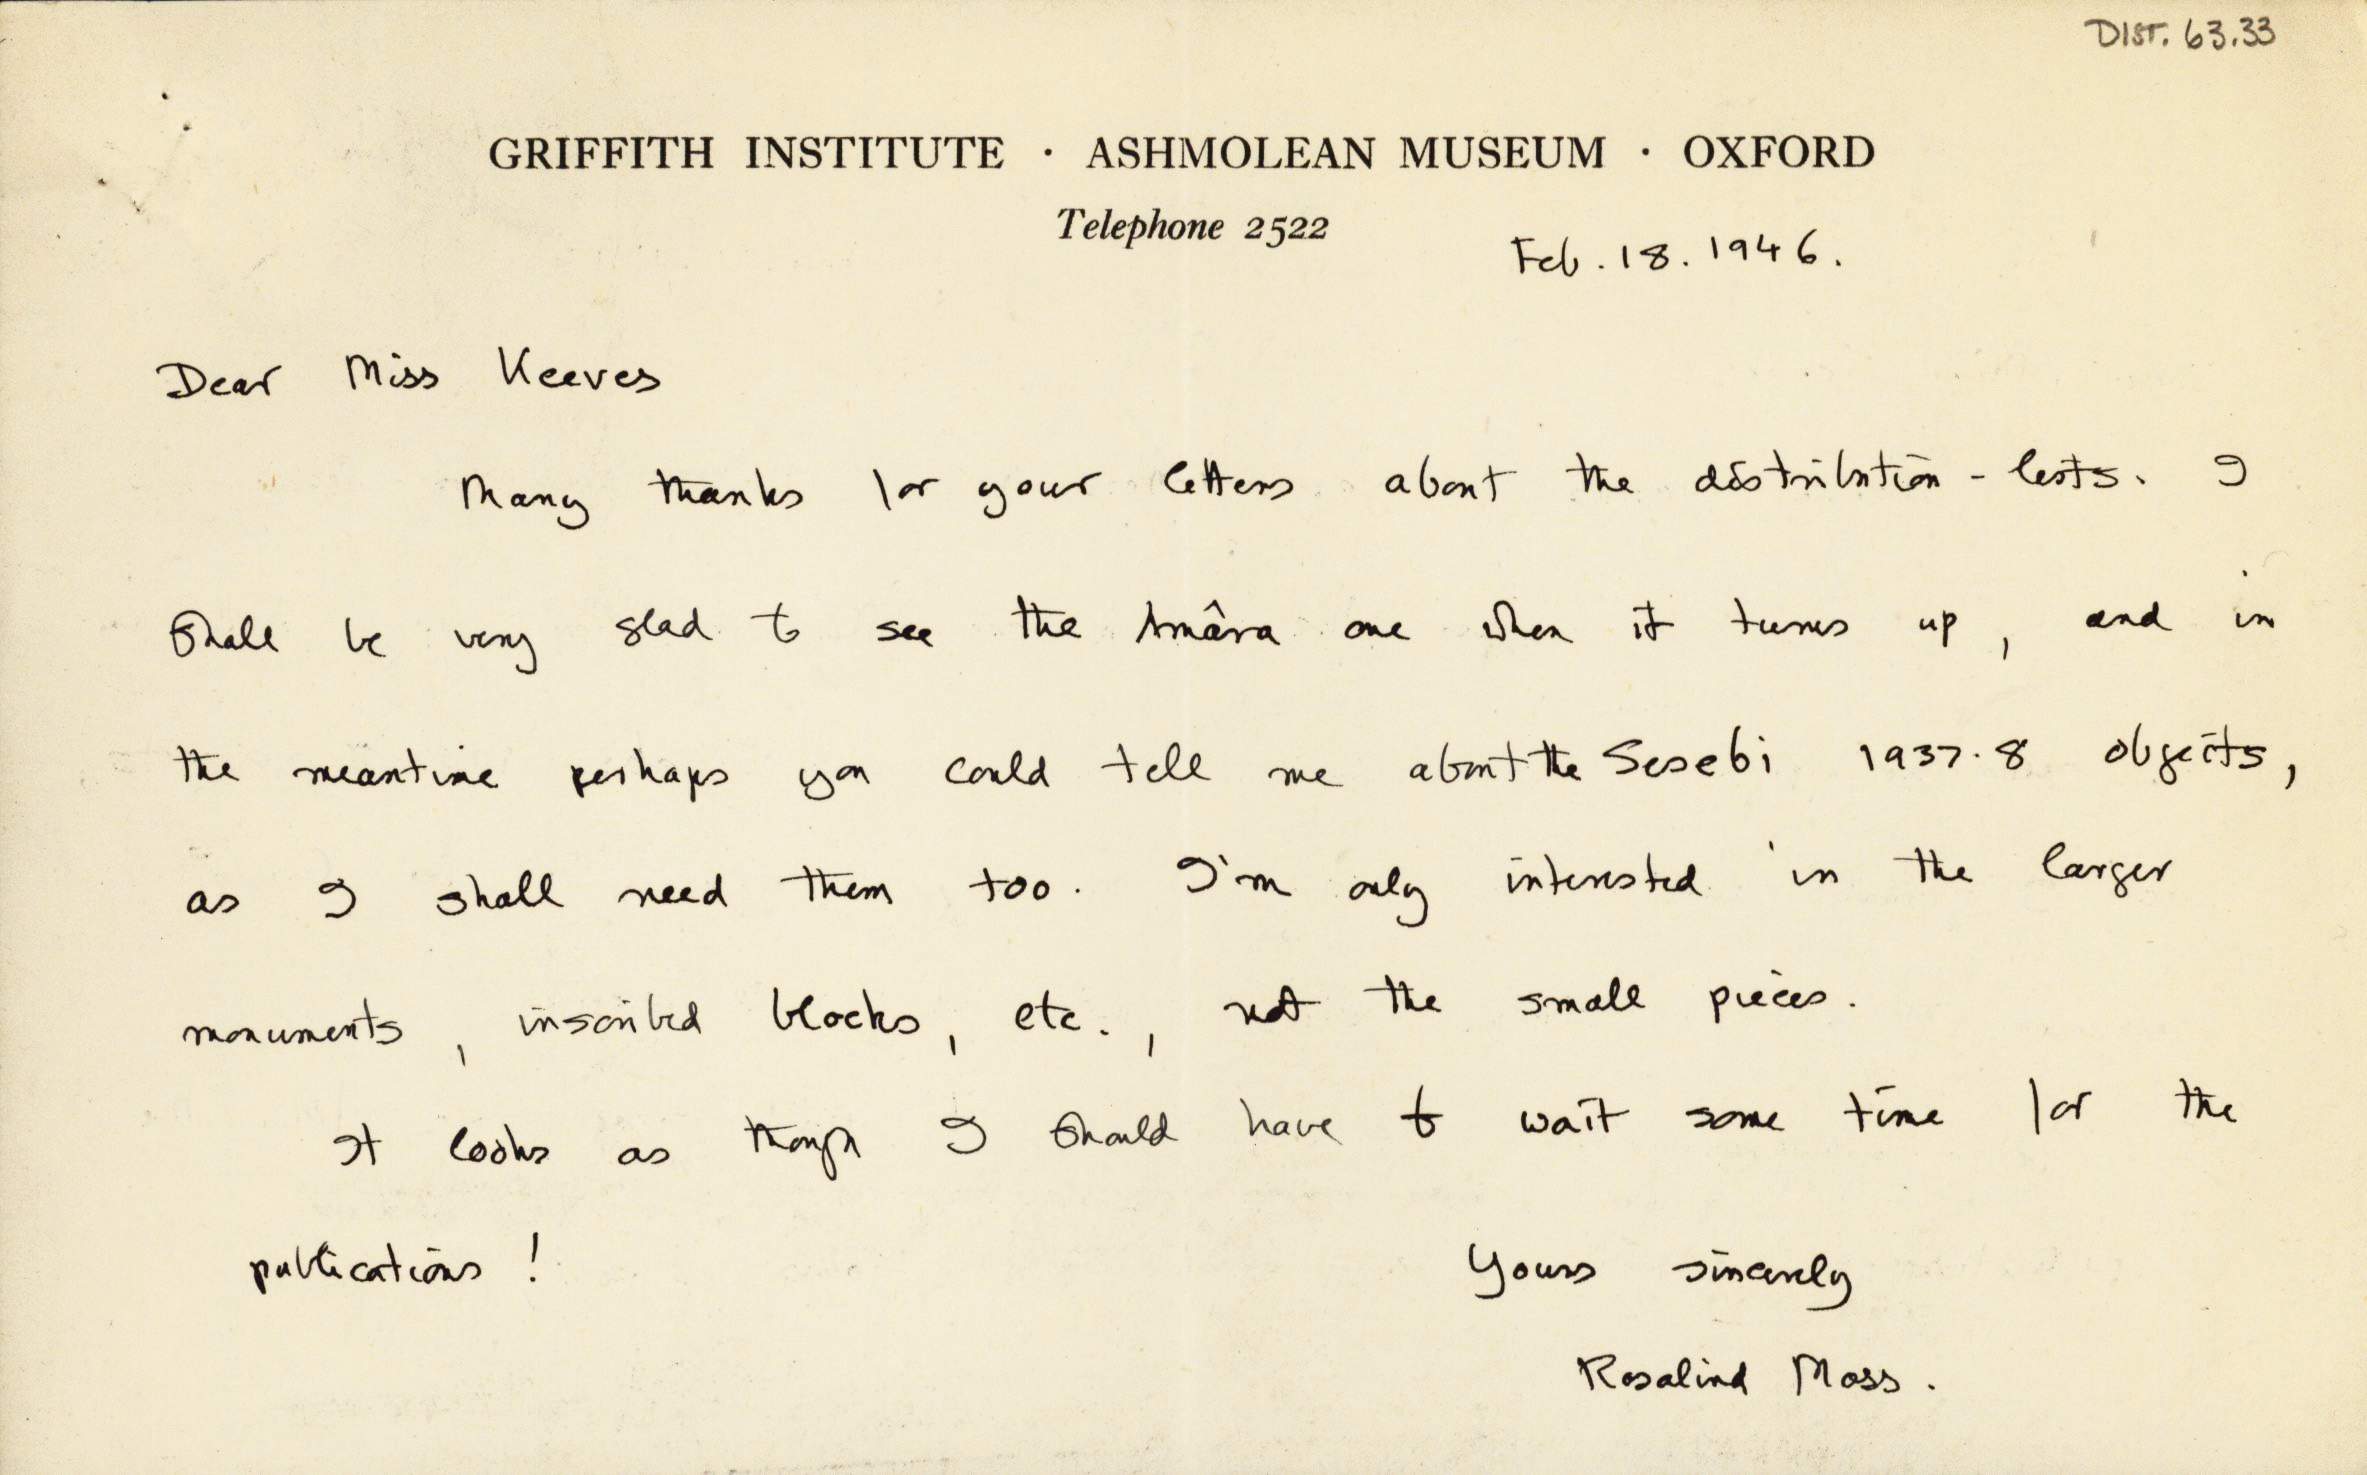 DIST. 63.33
GRIFFITH INSTITUTE · ASHMOLEAN MUSEUM · OXFORD
Telephone 2522
Feb. 18. 1946.
Dear Miss Keeves
Many thanks for your letters about the distribution-lists. I
shall be very glad to see the Amâra one when it turns up, and in
the meantime perhaps you could tell me about the Sesebi 1937.8 objects,
as I shall need them too. I'm only interested in the larger
monuments, inscribed blocks, etc., not the small pieces.
It looks as though I should have to wait some time for the
publications!
Yours sincerely
Rosalind Moss.